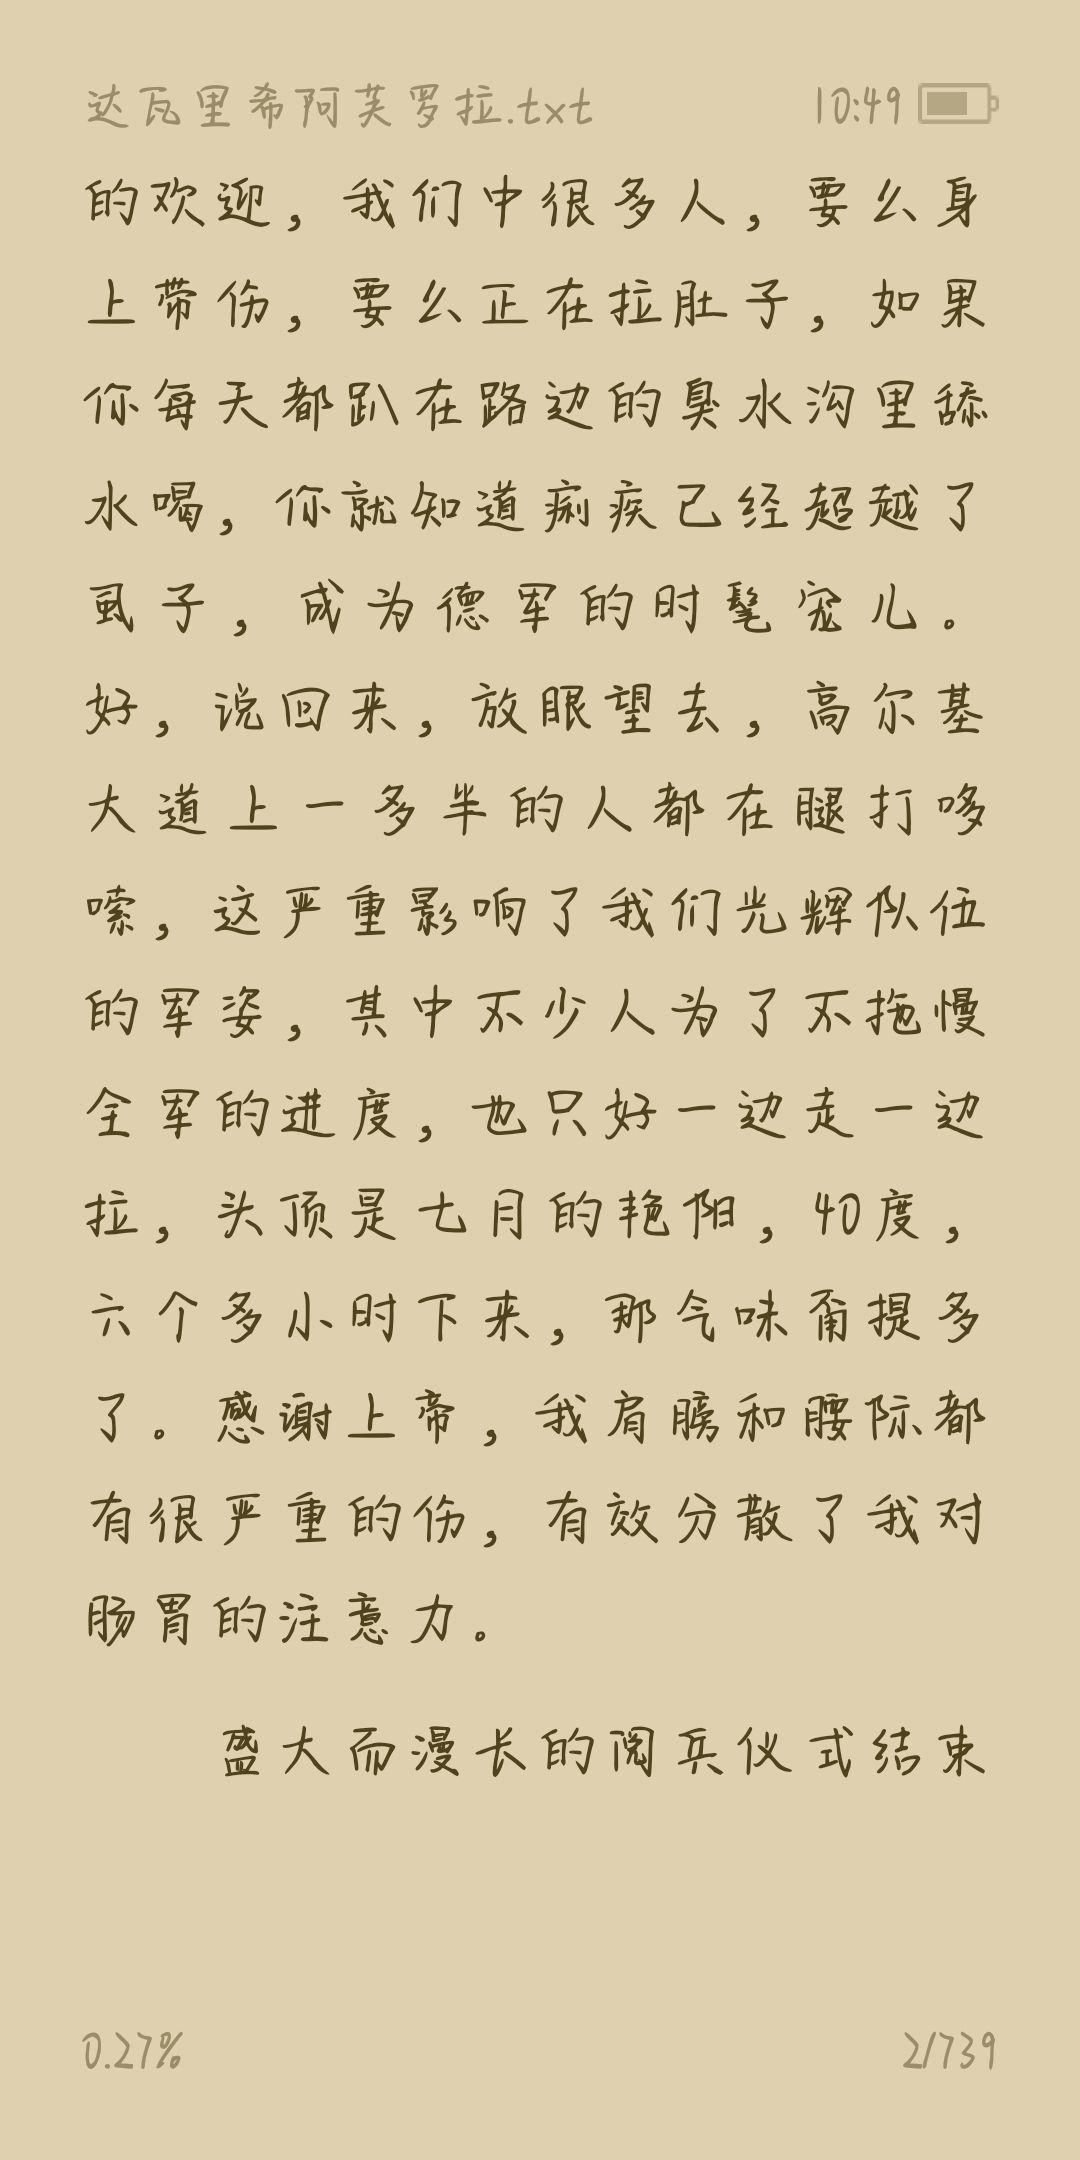 达瓦里希阿芙罗拉.txt 10:49
的欢迎，我们中很多人，要么身
上带伤，要么正在拉肚子，如果
你每天都趴在路边的臭水沟里舔
水喝，你就知道痢疾已经超越了
虱子，成为德军的时髦宠儿。
好，说回来，放眼望去，高尔基
大道上一多半的人都在腿打哆
嗦，这严重影响了我们光辉队伍
的军姿，其中不少人为了不拖慢
全军的进度，也只好一边走一边
拉，头顶是七月的艳阳，40度，
六个多小时下来，那气味甭提多
了。感谢上帝，我肩膀和腰际都
有很严重的伤，有效分散了我对
肠胃的注意力。
盛大而漫长的阅兵仪式结束
0.27% 2/739